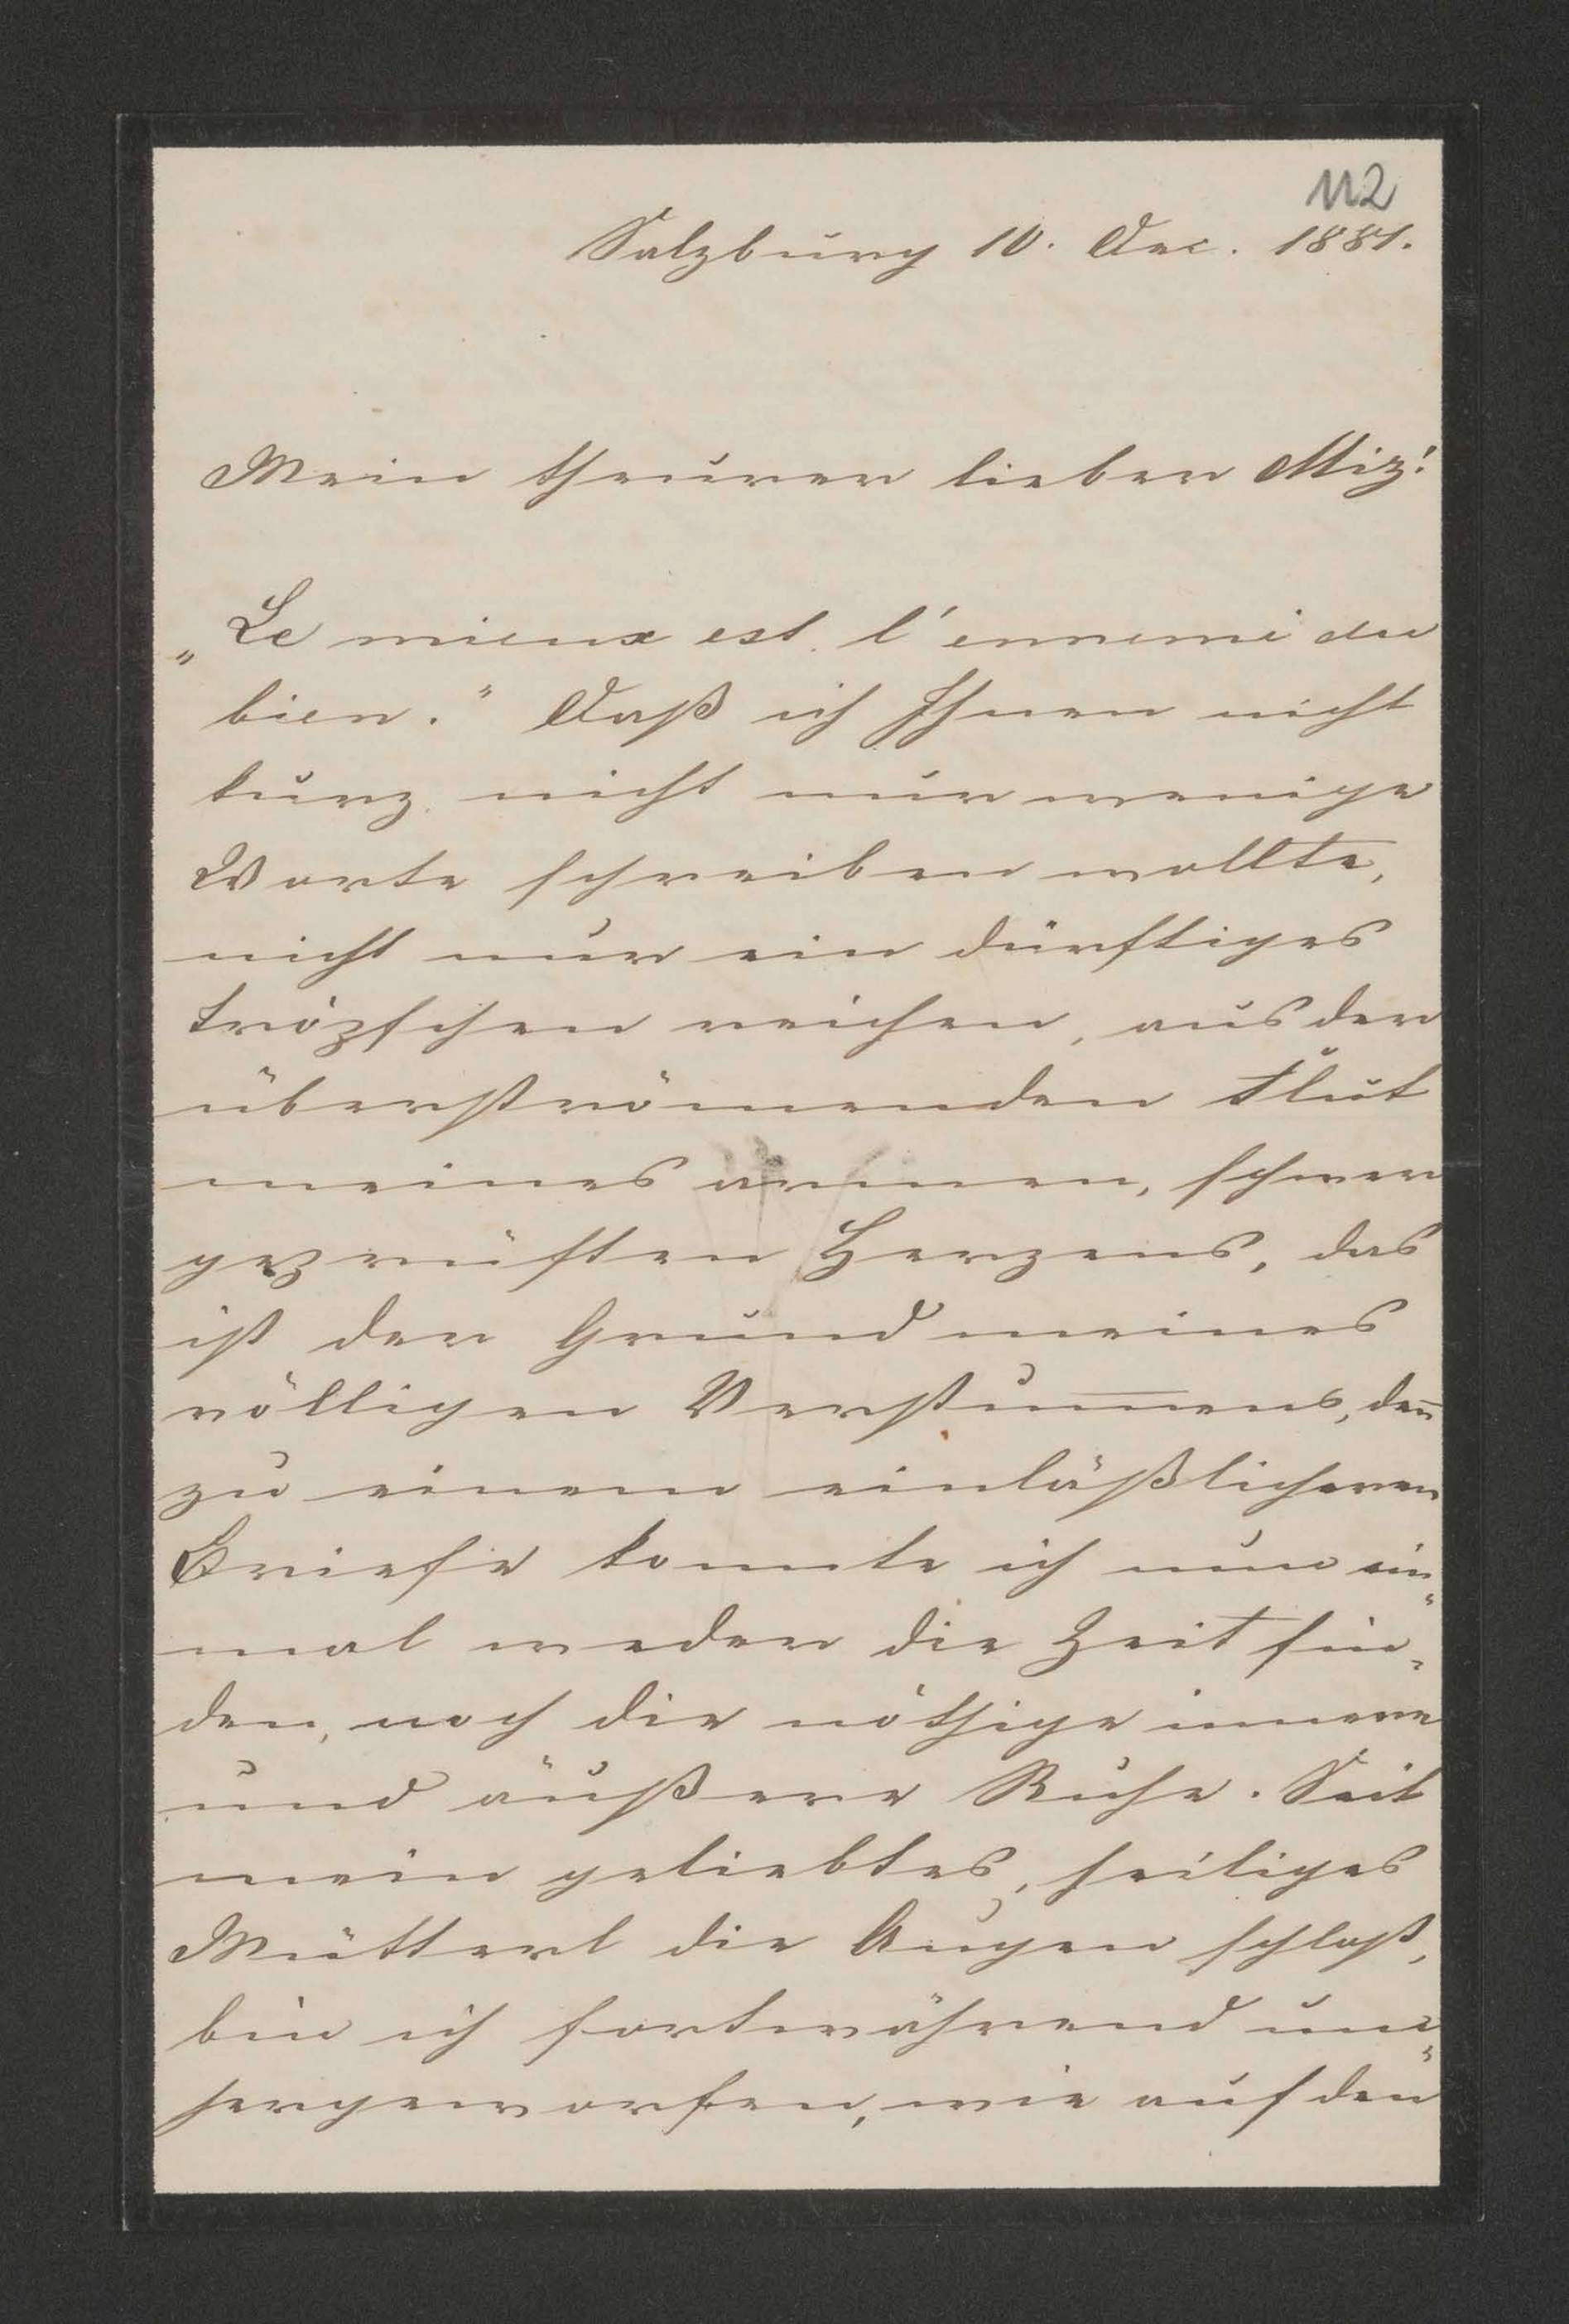 112
Salzburg 10. Dec. 1881.
Mein theurer lieber Miz!
„Le mieux est l'ennemi du
bien." Daß ich Ihnen nicht
kurz nicht nur wenige
Worte schreiben wollte,
nicht nur ein dürftiges
Tröpfchen reichen, aus der
überströmenden Flut
meines armen, schwer
geprüften Herzens, das
ist der Grund meines
völligen Verstum̅ens, den̅
zu einem einläßlicheren
Briefe konnte ich nun ein-
mal weder die Zeit fin-
den, noch die nöthige innere
und äußere Ruhe. Seit
mein geliebtes, heiliges
Mütterl die Augen schloß,
bin ich fortwährend um-
hergeworfen, wie auf den